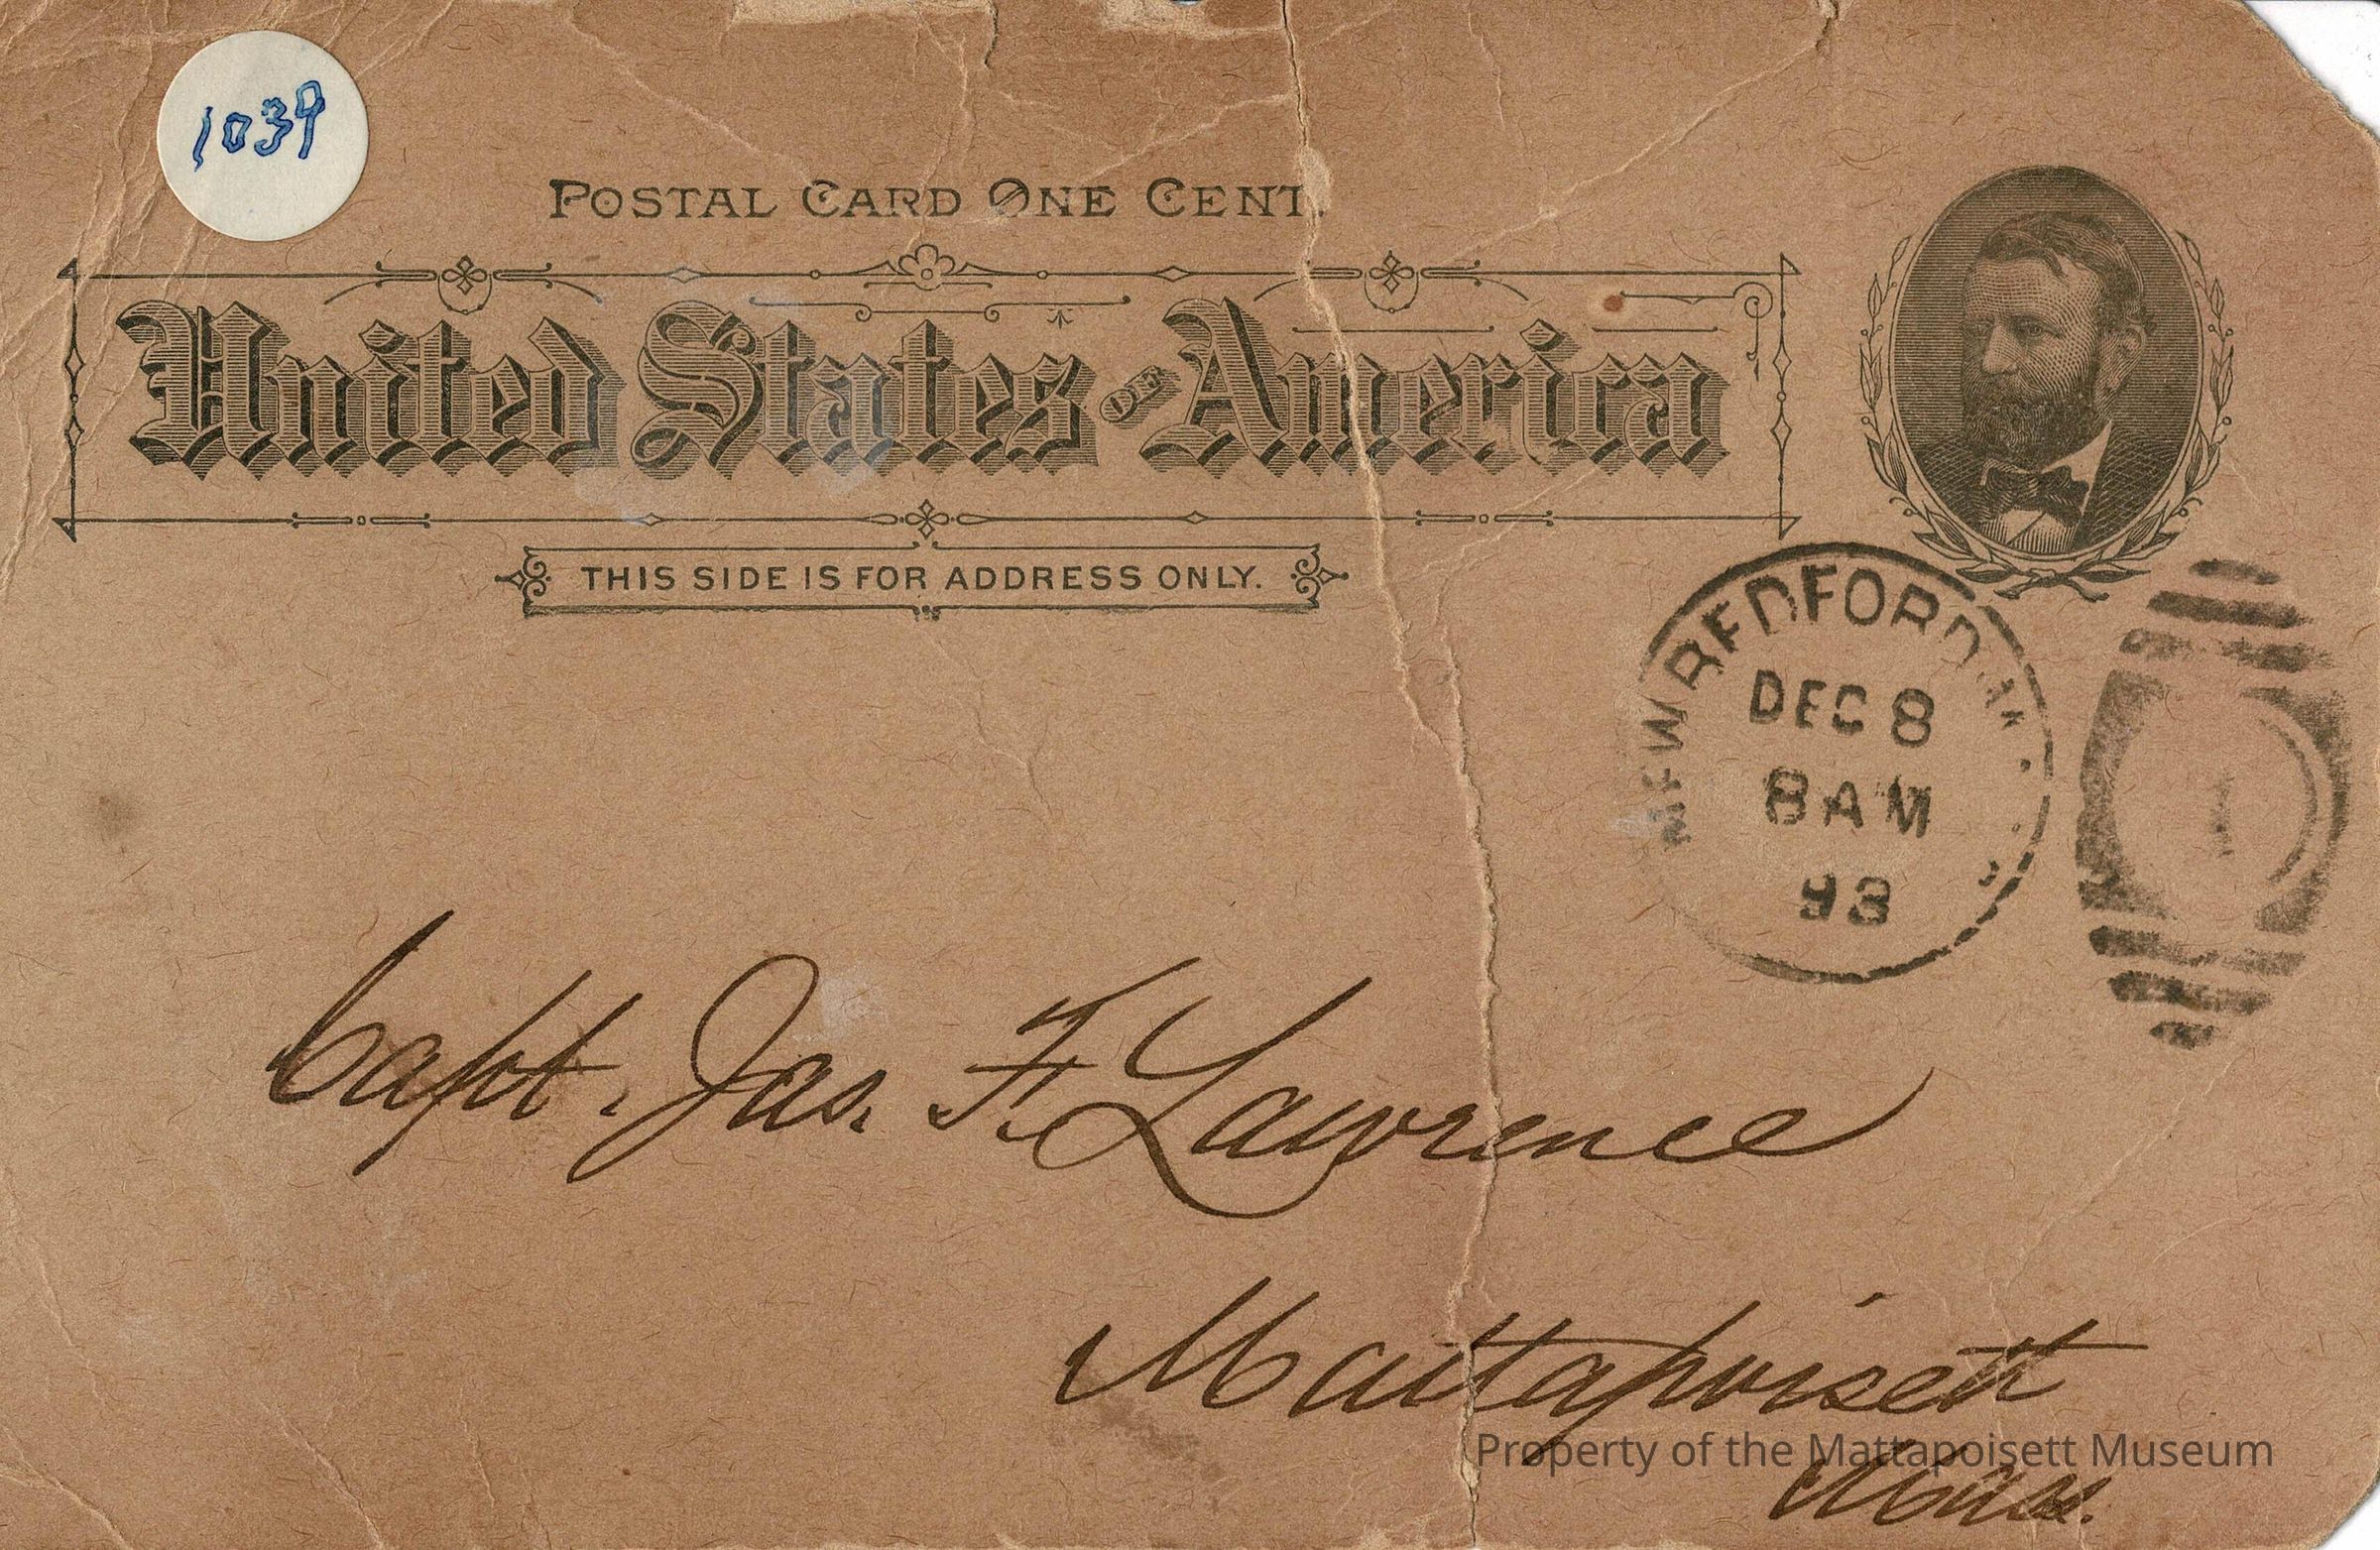 1039
POSTAL CARD ONE CENT.
United States OF America
THIS SIDE IS FOR ADDRESS ONLY.
NEW BEDFORD
DEC 8
8 AM
93
1
Capt. Jas. F. Lawrence
Mattapoisett
Mass.
Property of the Mattapoisett Museum